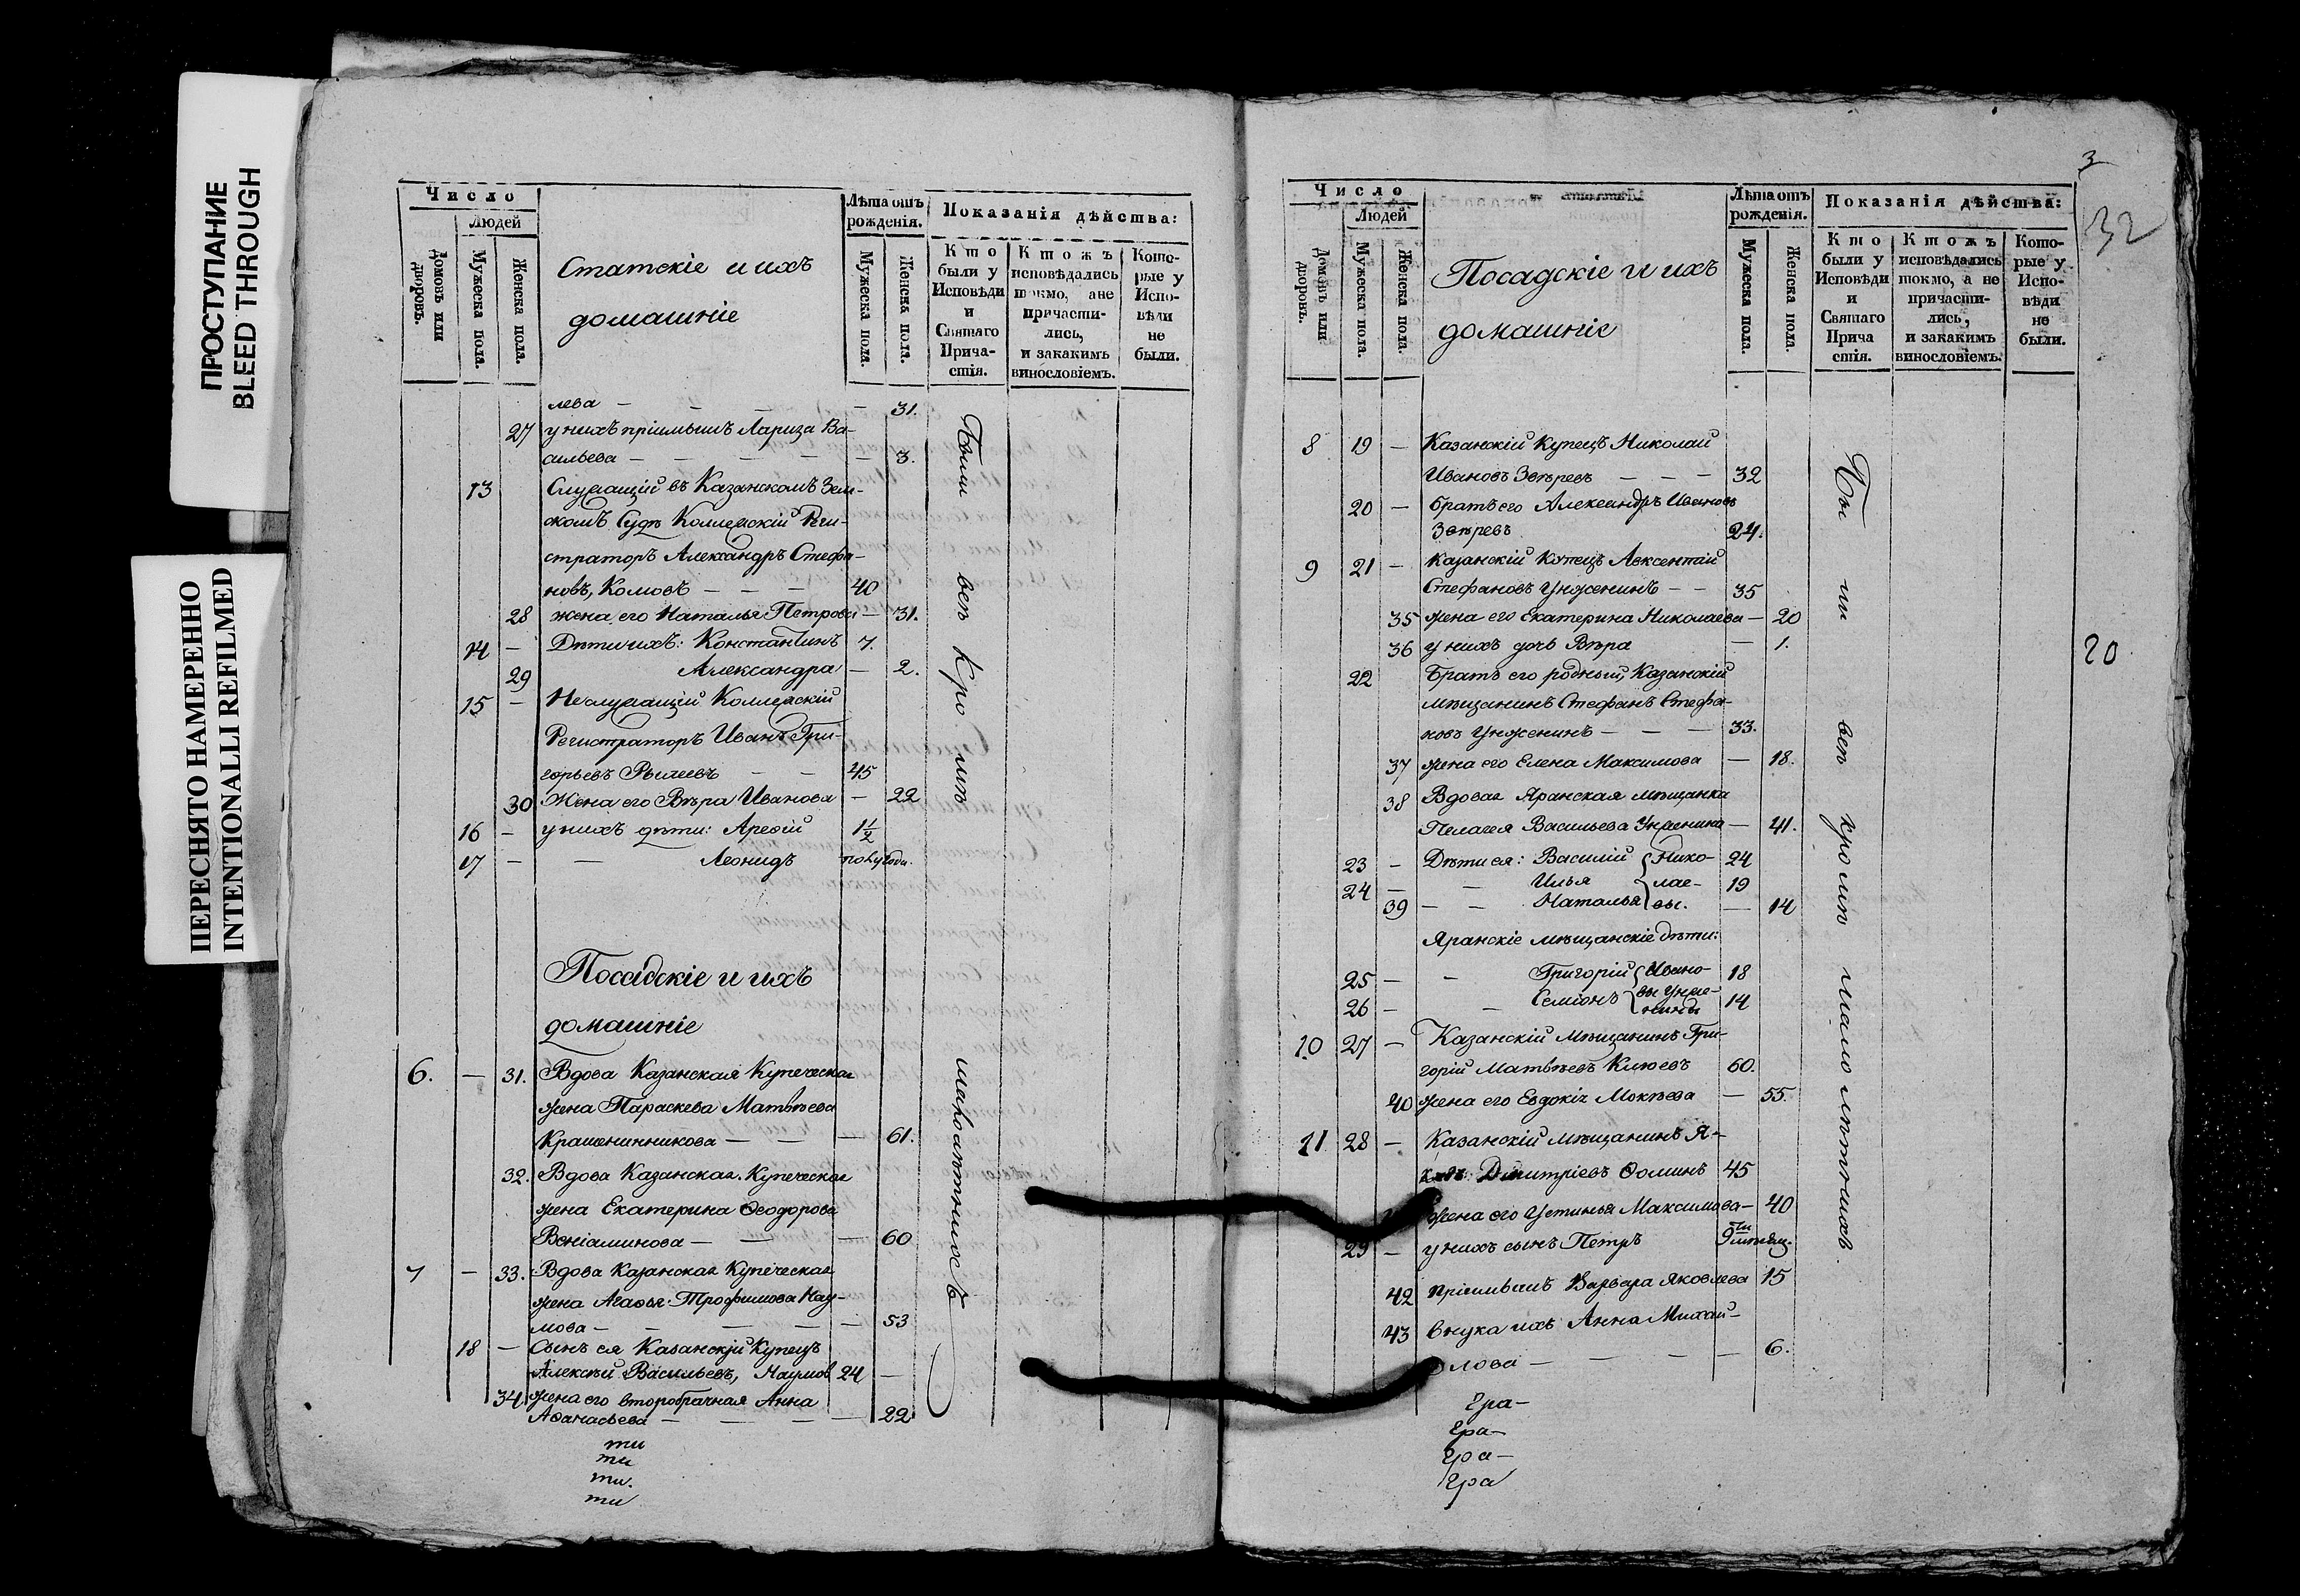 ПРОСТУПАНИЕ
BLEED THROUGH
ПЕРЕСНЯТО НАМЕРЕННО
INTENTIONALLI REFILMED
Число
Людей
Домовъ или дворовъ.
Мужеска пола.
Женска пола.
Статскіе и ихъ
домашніе
Лѣта отъ
рожденія.
Мужеска пола.
Женска пола.
Показанія дѣйства:
Кто
были у
Исповѣди
и
Святаго
Прича-
стія.
Ктожъ
исповѣдались
токмо, а не
причасти-
лись,
и закакимъ
винословіемъ.
Кото-
рые у
Испо-
вѣди
не
были.
лева — — — — 31.
27 у нихъ пріимышъ Лариза Ва-
сильева — — — — — 3.
13 Служащій въ Казанскомъ Зем-
скомъ Судѣ Коллежскій Реги-
страторъ Александръ Стефа-
новъ, Комовъ — — — 40
28 жена его Наталья Петрова — 31.
14 — Дѣти ихъ: Константинъ 7.
29 Александра — 2.
15 — Неслужащій Коллежскій
Регистраторъ Иванъ Гри-
горьевъ Рылеевъ — — 45
30 Жена его Вѣра Иванова — 22
16 — у нихъ дѣти: Арефій 1½
17 — — Леонидъ полугода.
Посадскіе и ихъ
домашніе
6. — 31. Вдова Казанская Купеческая
жена Параскева Матвѣева
Крашенинникова — — — 61.
32. Вдова Казанская Купеческая
жена Екатерина Ѳеодорова
Веніаминова — — — 60
7 — 33. Вдова Казанская Купеческая
жена Агаѳья Трофимова Нау-
мова — — — — — 53
18 — Сынъ ея Казанскій Купецъ
Алексѣй Васильевъ, Наумов 24 —
34 жена его второбрачная Анна
Аѳанасьева — — — — 22
ти
ти
ти.
ти
Были всѣ кромѣ малолѣтнихъ
3
32
20
Число
Людей
Домовъ или дворовъ.
Мужеска пола.
Женска пола.
Посадскіе и ихъ
домашніе
Лѣта отъ
рожденія.
Мужеска пола.
Женска пола.
Показанія дѣйства:
Кто
были у
Исповѣди
и
Святаго
Прича
стія.
Ктожъ
исповѣдались
токмо, а не
причасти-
лись,
и закакимъ
винословіемъ.
Кото-
рые у
Испо-
вѣди
не
были.
8 19 — Казанскій Купецъ Николай
Ивановъ Звѣревъ — — — 32
20 — Братъ его Александръ Ивановъ
Звѣревъ 24.
9 21 — Казанскій Купецъ Авксентий
Стефановъ Унженинъ — — 35
35 жена его Екатерина Николаева — 20
36 у нихъ дочь Вѣра — 1.
22 Братъ его родный, Казанскій
мѣщанинъ Стефанъ Стефа-
новъ Унженинъ — — — 33.
37 жена его Елена Максимова — 18.
38 Вдова Яранская мѣщанка
Пелагея Васильева Унженина — 41.
23 — Дѣти ея: Василій { Нико- 24
24 — — Илья { лае- 19
39 — — Наталья { вы. — 14
Яранскіе мѣщанскіе дѣти:
25 — — Григорій { Ивано- 18
26 — — Семіонъ { вы Унже-нины 14
10 27 — Казанскій Мѣщанинъ Гри-
горій Матвѣевъ Клюевъ 60.
40 жена его Евдокія Мокѣева — 55.
11 28 — Казанскій мѣщанинъ Я-
Димитріевъ Ѳоминъ 45
жена его Устинья Максимова — 40
29 — у нихъ сынъ Петръ 9ти мѣсяц.
42 пріимышъ Варвара Яковлева 15
43 внука ихъ Анна Михай-
лова — — — — — 6.
Ера-
Ера-
Ера-
Ера
Бы ли всѣ кромѣ малолѣтнихъ